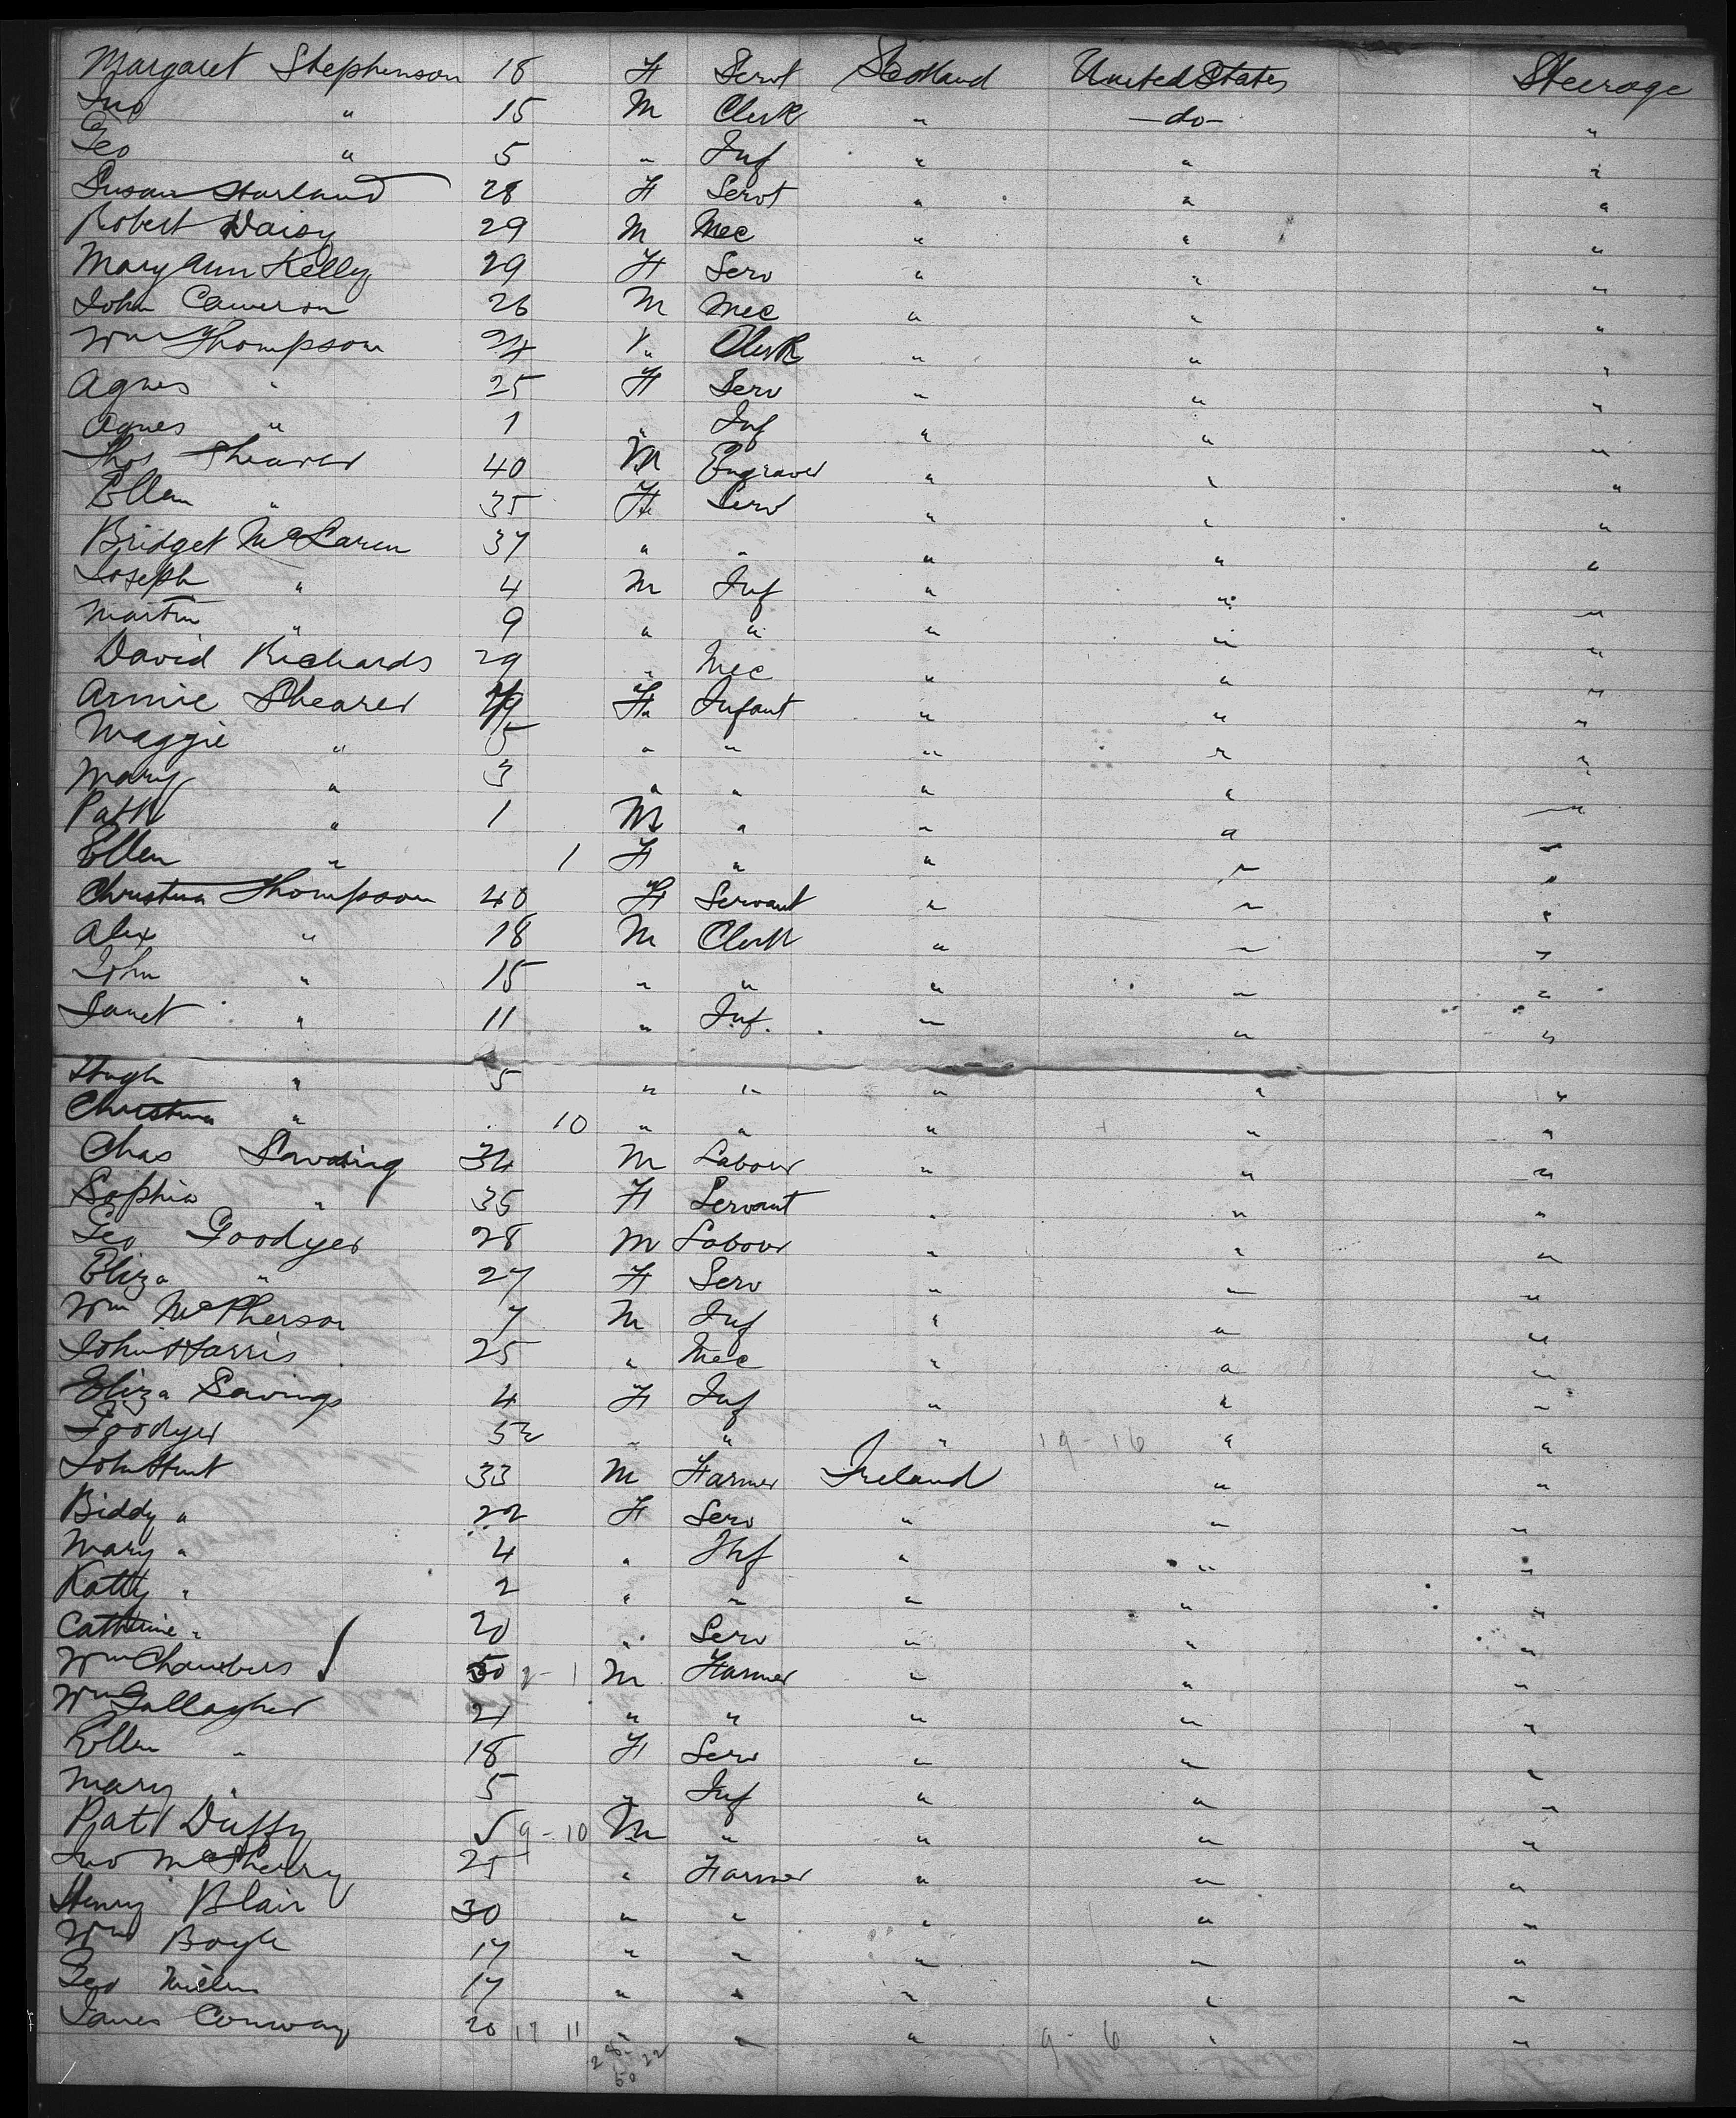 Margaret Stephenson 18 F Servt Scotland United States Steerage
Jno " 15 M Clerk " -do- "
Geo " 5 " Inf " " "
Susan Harland 28 F Servt " " "
Robert Daisy 29 M Mec " " "
Mary Ann Kelly 29 F Serv " " "
John Cameron 26 M Mec " " "
Wm Thompson 24 " Clerk " " "
Agnes " 25 F Serv " " "
Agnes " 1 " Inf " " "
Thos Shearer 40 M Engraver " " "
Ellen " 35 F Serv " " "
Bridget McLaren 37 " " " " "
Joseph " 4 M Inf " " "
Martin " 9 " " " " "
David Richards 29 " Mec " " "
Annie Shearer F Infant " " "
Maggie " 5 " " " " "
Mary " 3 " " " " "
Patk " 1 M " " " "
Ellen " 1 F " " " "
Christina Thompson 40 F Servant " " "
Alex " 18 M Clerk " " "
John " 15 " " " " "
Janet " 11 " Inf. " " "
Hugh " 5 " " " " "
Christina " 10 " " " " "
Chas 34 M Labour " " "
Sophia " 35 F Servant " " "
Geo Goodyer 28 M Labour " " "
Eliza " 27 F Serv " " "
Wm McPherson 7 M Inf " " "
John Harris 25 " Mec " " "
Eliza Savings 4 F Inf " " "
Goodyer " " " 19-16 " "
John Hunt 33 M Farmer Ireland " "
Biddy " 22 F Serv " " "
Mary " 4 " Inf " " "
Katty " 2 " " " " "
Catherine " 20 " Serv " " "
Wm Chambers 50 M Farmer " " "
Wm Gallagher 21 " " " " "
Ellen " 18 F Serv " " "
Mary " 5 " Inf " " "
Pat Duffy 5 9-10 M " " " "
Jno McSherry 25 " Farmer " " "
Henry Blair 30 " " " " "
Wm Boyle 17 " " " " "
Geo Millen 17 " " " " "
James Conway 20 17 11 " " " 9-6 " "